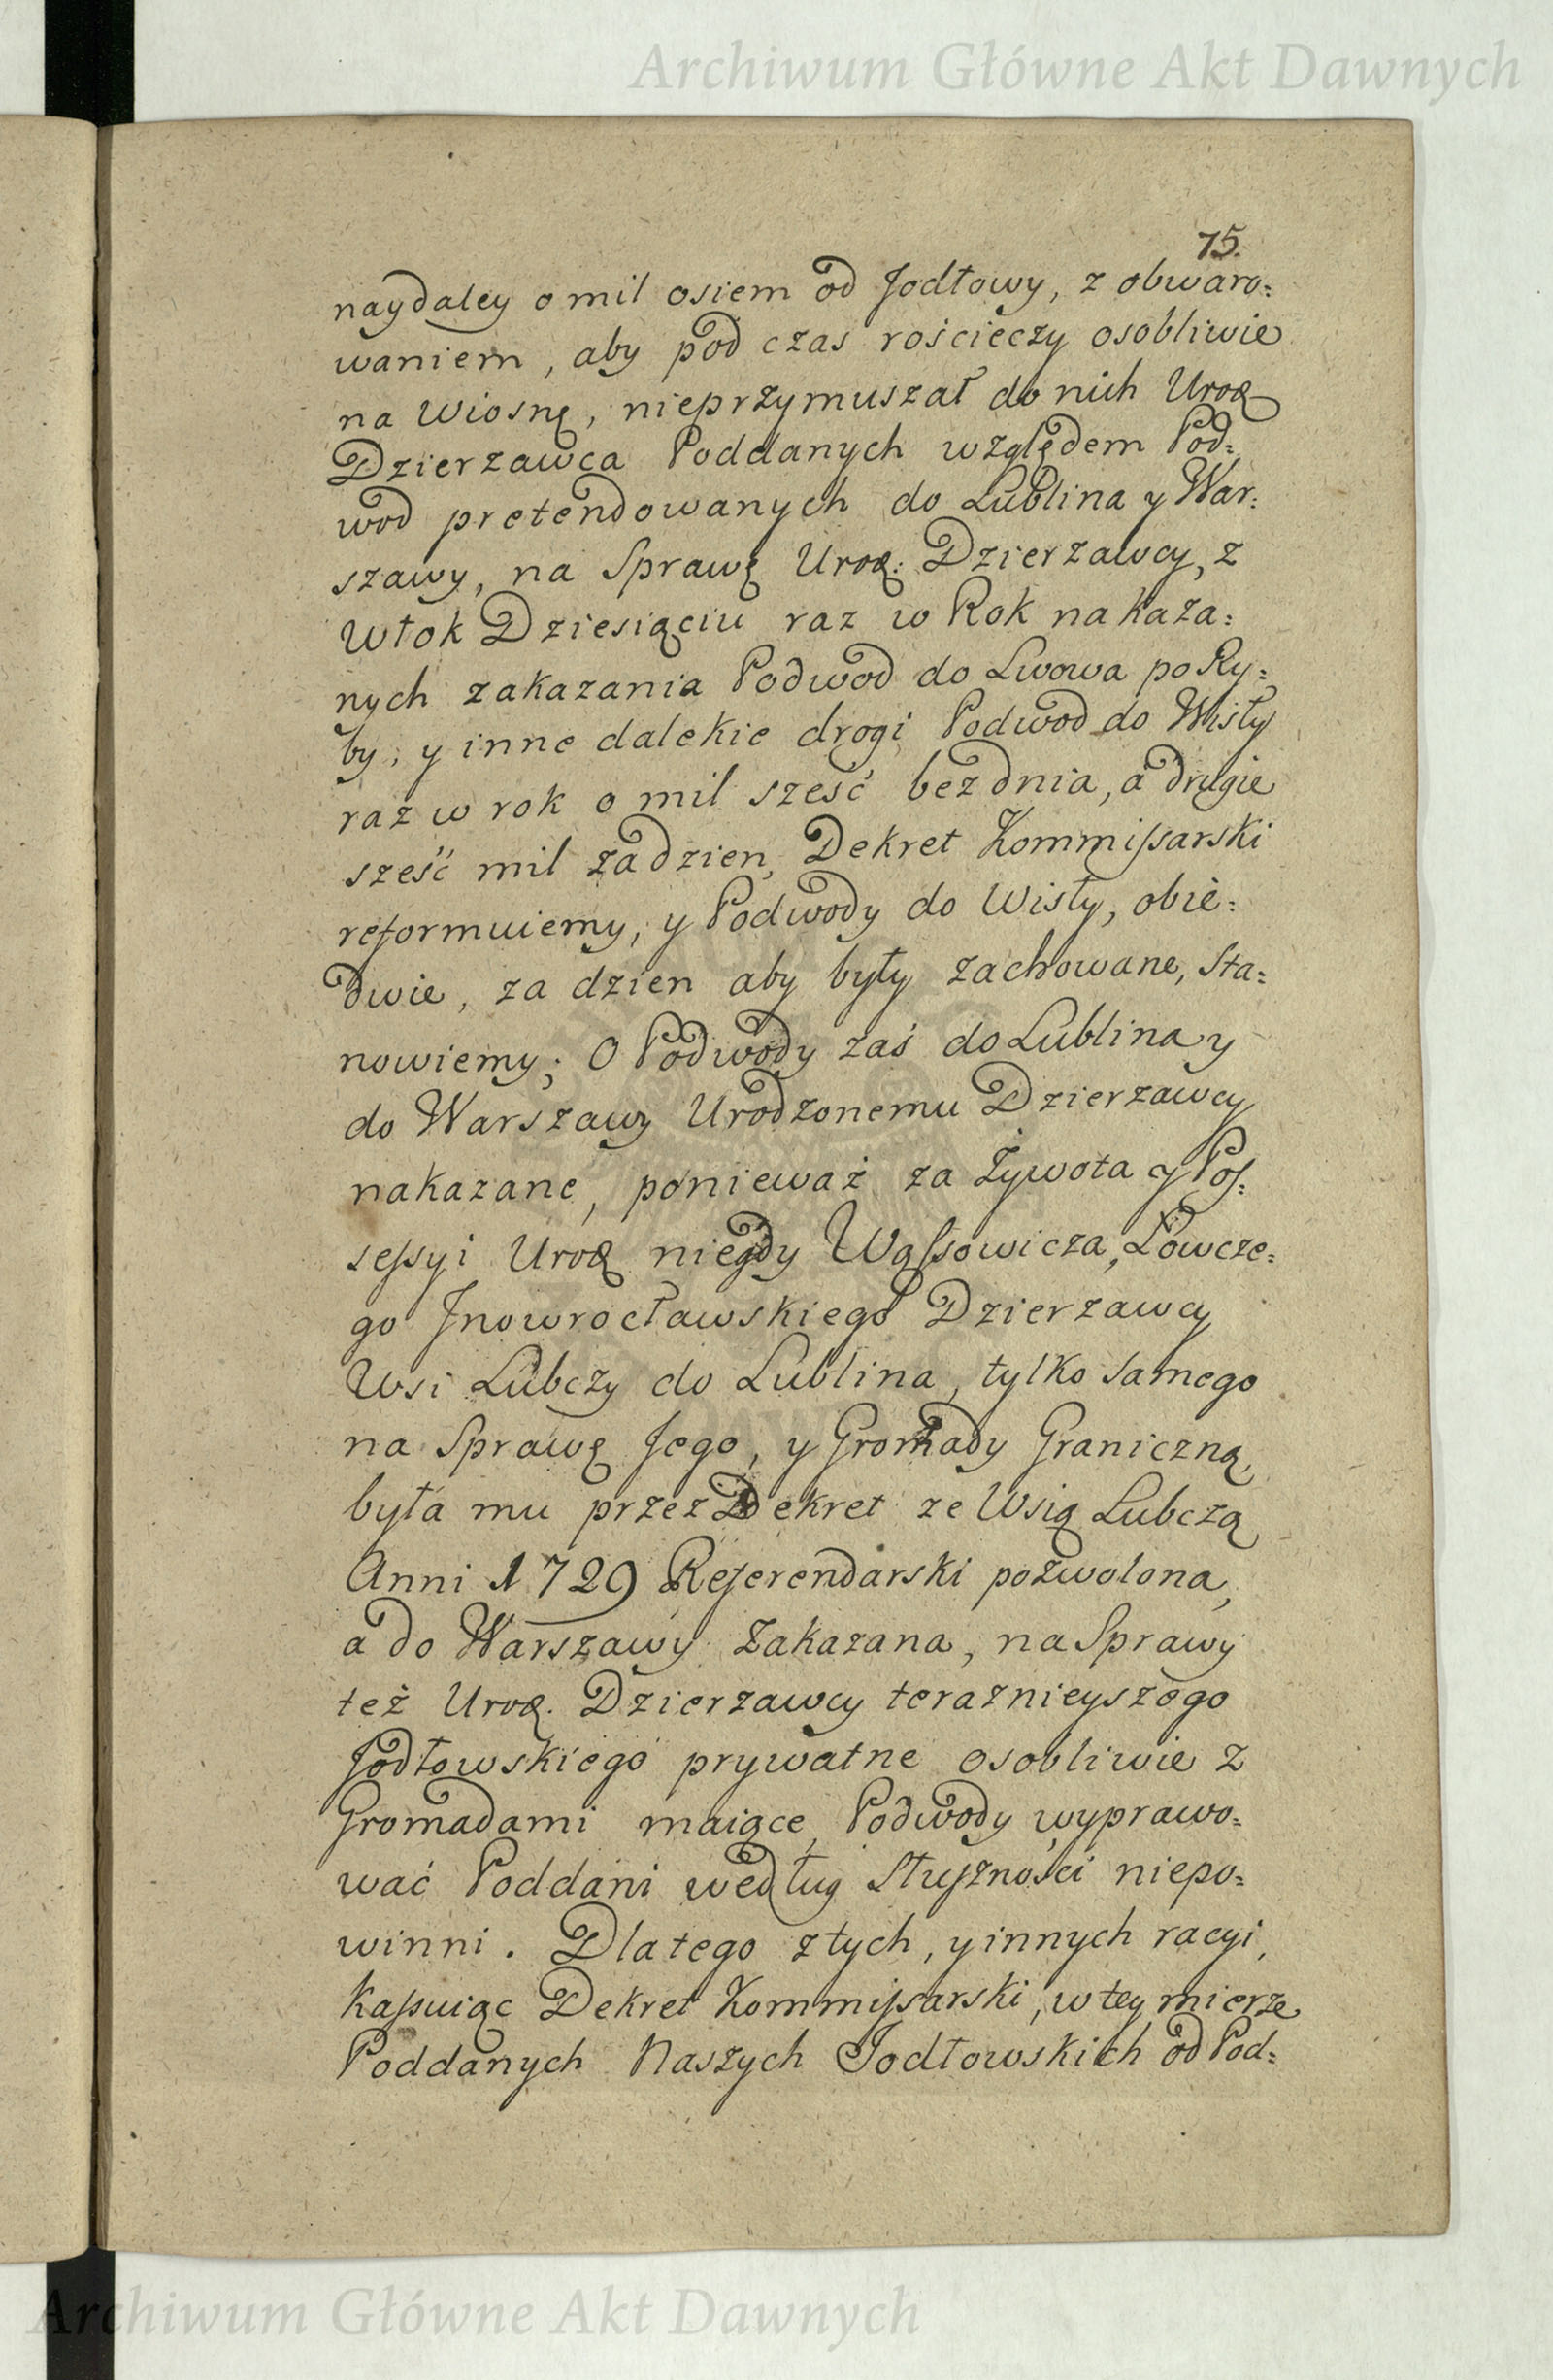 Archiwum Główne Akt Dawnych
75.
naydaley o mil osiem od Jodłowy, z obwaro=
waniem, aby pod czas rościeczy osobliwie
na wiosnę, nieprzymuszał do nich Uroz
Dzierzawca Poddanych względem Pod=
wod pretendowanych do Lublina y War=
szawy, na Sprawę Uroz: Dzierzawcy, z
Włok Dziesiąciu raz w Rok nakaza=
nych zakazania Podwod do Lwowa po Ry=
by, y inne dalekie drogi Podwod do Wisły
raz w rok o mil sześć bez dnia, a drugie
sześć mil za dzien, Dekret Kommissarski
reformuiemy, y Podwody do Wisły, obie=
dwie, za dzien aby były zachowane, Sta=
nowiemy; O Podwody zaś do Lublina y
do Warszawy Urodzonemu Dzierzawcy
nakazane, ponieważ za Żywota y Pos=
sessyi Uroz niegdy Wąssowicza, Łowcze=
go Jnowrocławskiego Dzierzawcy
Wsi Lubczy do Lublina, tylko samego
na Sprawę Jego, y Gromady Graniczną,
była mu przez Dekret ze Wsią Lubczą
Anni 1729 Referendarski pozwolona,
a do Warszawy Zakazana, na Sprawy
też Uroz. Dzierzawcy teraznieyszego
Jodłowskiego prywatne osobliwie z
Gromadami maiące, Podwody wyprawo=
wać Poddani według Słuszności niepo=
winni. Dlatego z tych, y innych racyi,
Kassuiąc Dekret Kommissarski, w tey mierze
Poddanych Naszych Jodłowskich od Pod=
Archiwum Główne Akt Dawnych